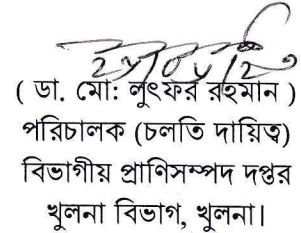 ( ডা. মো: লুৎফর রহমান )
পরিচালক (চলতি দায়িত্ব)
বিভাগীয় প্রাণিসম্পদ দপ্তর
খুলনা বিভাগ, খুলনা।